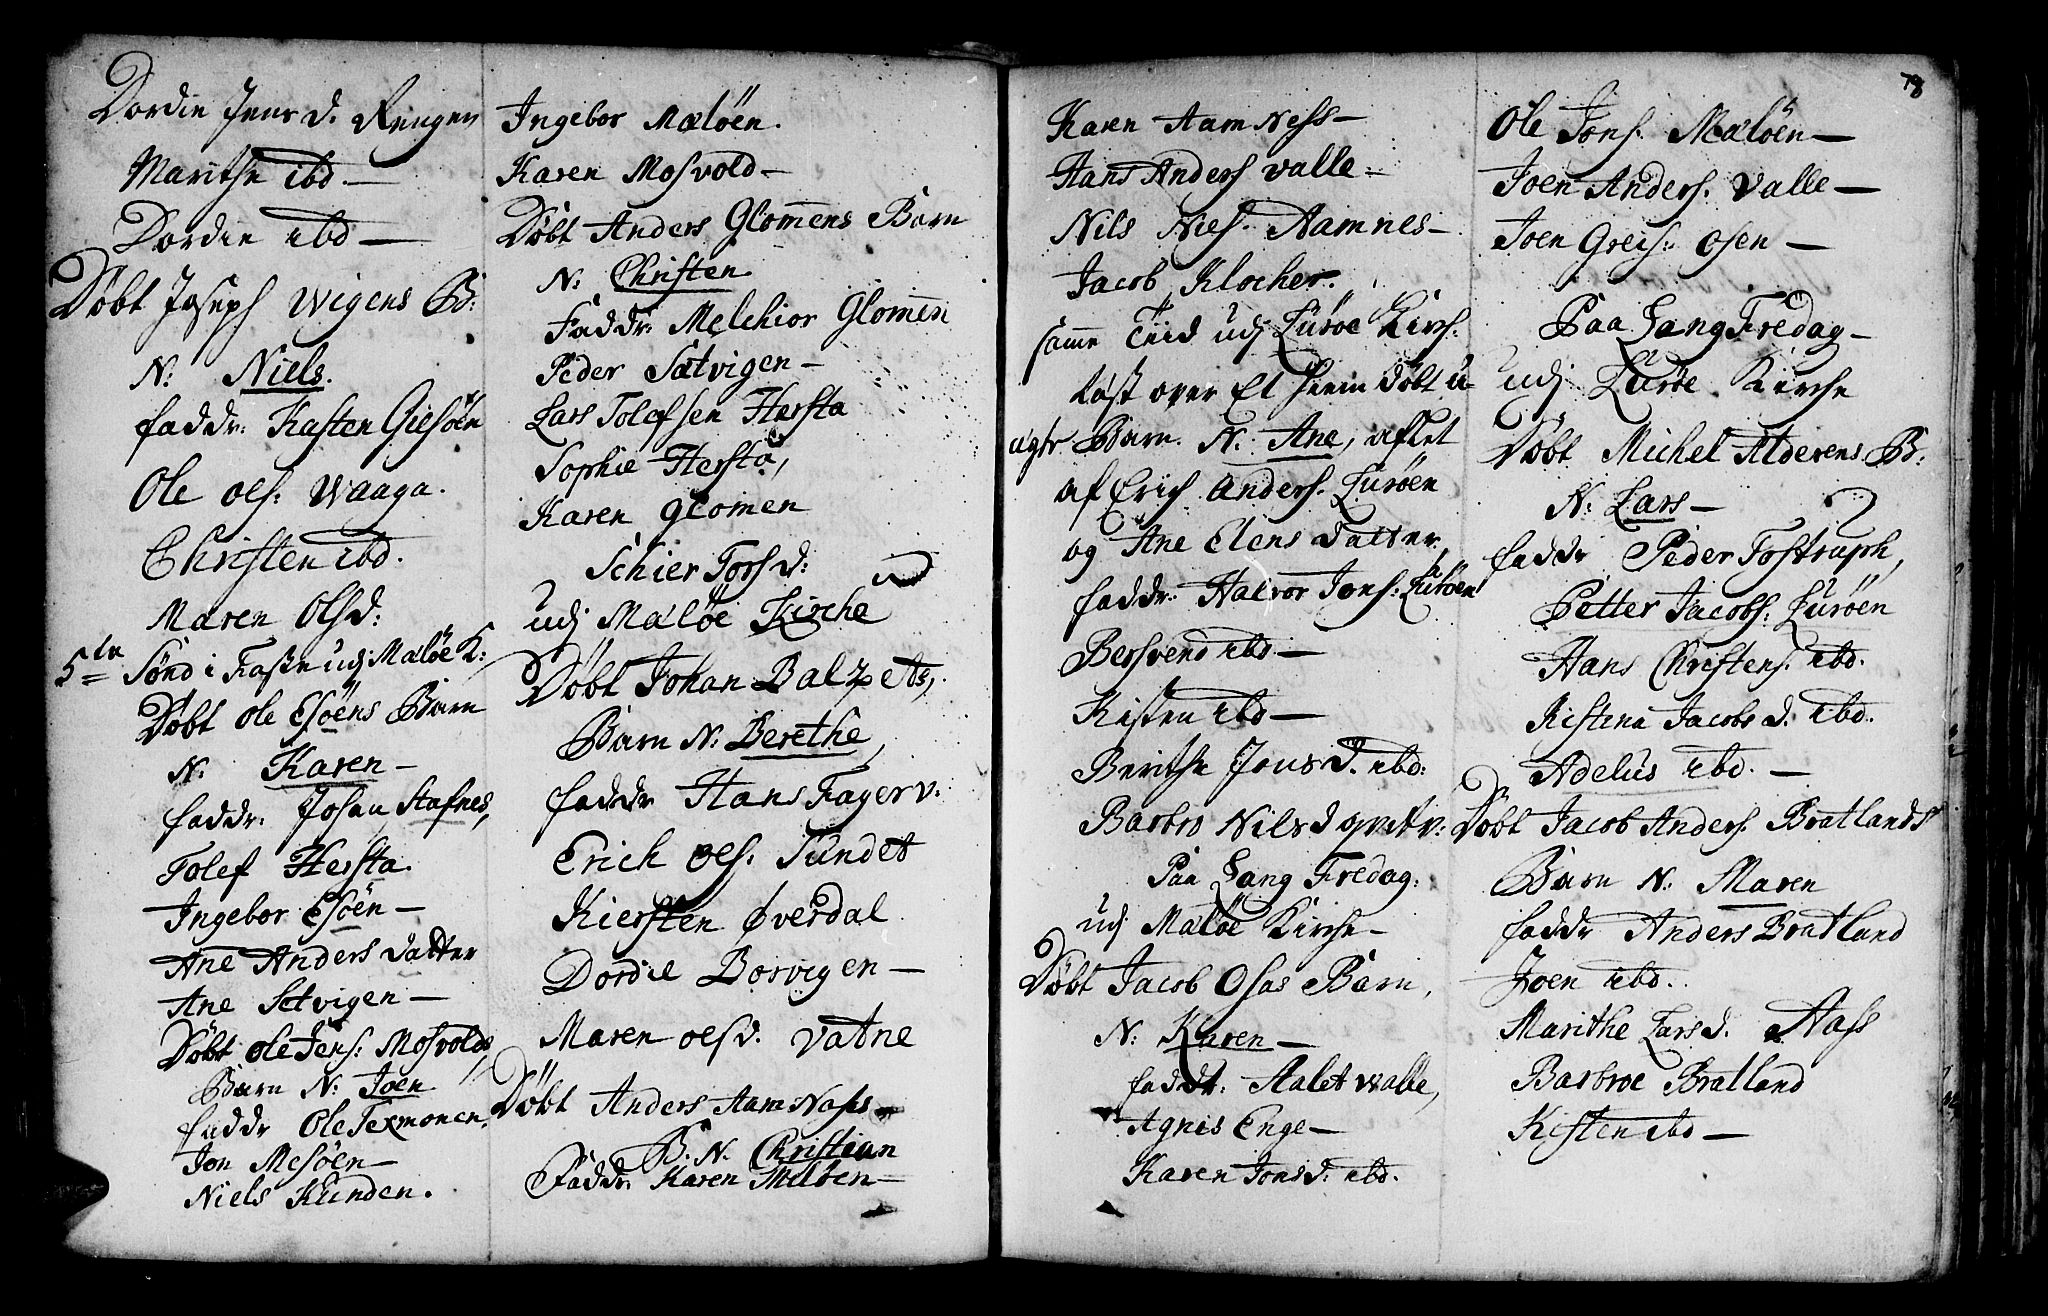 Dordie Jens d. Rengen
Marithe ibd. —
Dordie ibd —
Döbt Joseph Wigens B:
N: Niels.
faddr: Kasten Giesöen
Ole oes: Waaga.
Christen ibd.
Maren Olsd:
5te Sönd i Faste udj Malöe K:
Döbt Ole Esöens Barn
N. Karen —
faddr. Johan Stafnes,
Tolef Hersta.
Ingebor Esöen —
Ane Anders datter
Ane Setvigen —
Döbt Ole Jens: Mosvolds,
Barn N: Joen
faddr Ole Texmonen.
Jon Mesöen —
Niels Kunden.
Ingebor Malöen.
Karen Mosvold —
Döbt Anders Glomens Barn
N: Christen
Faddr: Melchior Glomen
Peder Satvigen —
Lars Tolefsen Hersta
Sophie Hersta,
Karen Glomen
Schier Torsd:
udj Malöe Kirche
Döbt Johan Balzets,
Barn N: Berethe,
faddr Hans Fagerv.
Erich oes. Sundet
Kiersten Överdal
Dordie Borvigen —
Maren oesd. Vatne
Döbt Anders Aam Nases
B. N. Christian
Faddr. Karen Melöen —
Karen Aam Ness —
Hans Anders Valle =
Nils Nies. Aamnes —
Jacob Klocher.
samme Tiid udj Luröe Kirch:
läst over Et hiem döbt u-
ægte Barn. N. Ane, aflet
af Erich Anders. Luröen
og Ane Elens datter,
faddr: Halvor Jons: Luröen
Bersvend ibd —
Kisten ibd —
Berithe Jonsd. ibd:
Barbro Nilsd
Paa Lang Fredag.
udj Malöe Kirche —
Döbt Jacob Osas Barn,
N: Karen —
faddr. Aalet Walle,
Agnis Enge —
Karen Jonsd. ibd.
78
Ole Jons. Malöen —
Joen Anders. Valle —
Joen Greis: Osen —
Paa Lang Fredag —
udj Luröe Kirche
Döbt Michel Alderens B:
N: Lars —
faddr Peder Tostruph,
Petter Jacobs. Luröen
Hans Christens. ibd.
Kistena Jacobs d. ibd.
Adelus ibd. —
Döbt Jacob Anders. Bratlands
Barn N: Maren
faddr Anders Bratland
Joen ibd.
Marithe Larsd. Nass
Barbroe Bratland
Kisten ibd —